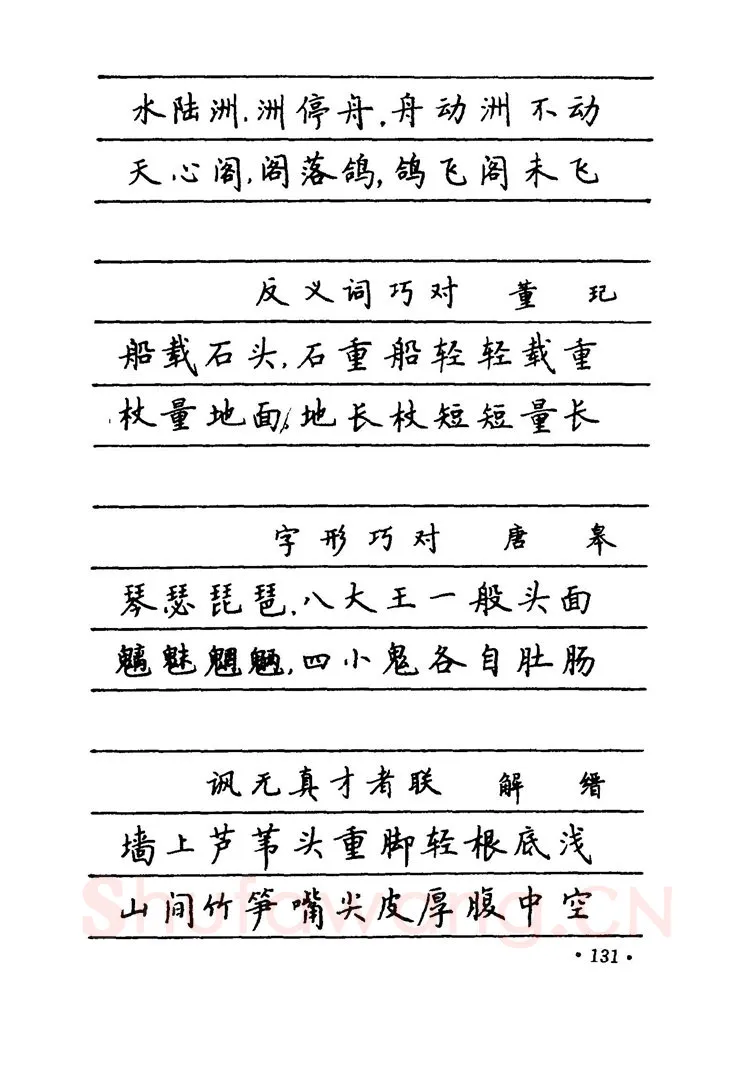 水陆洲,洲停舟,舟动洲不动
天心阁,阁落鸽,鸽飞阁未飞
反义词巧对 董 玘
船载石头,石重船轻轻载重
杖量地面,地长杖短短量长
字形巧对 唐 皋
琴瑟琵琶,八大王一般头面
魑魅魍魉,四小鬼各自肚肠
讽无真才者联 解 缙
墙上芦苇头重脚轻根底浅
山间竹笋嘴尖皮厚腹中空
Shufawang.CN
·131·